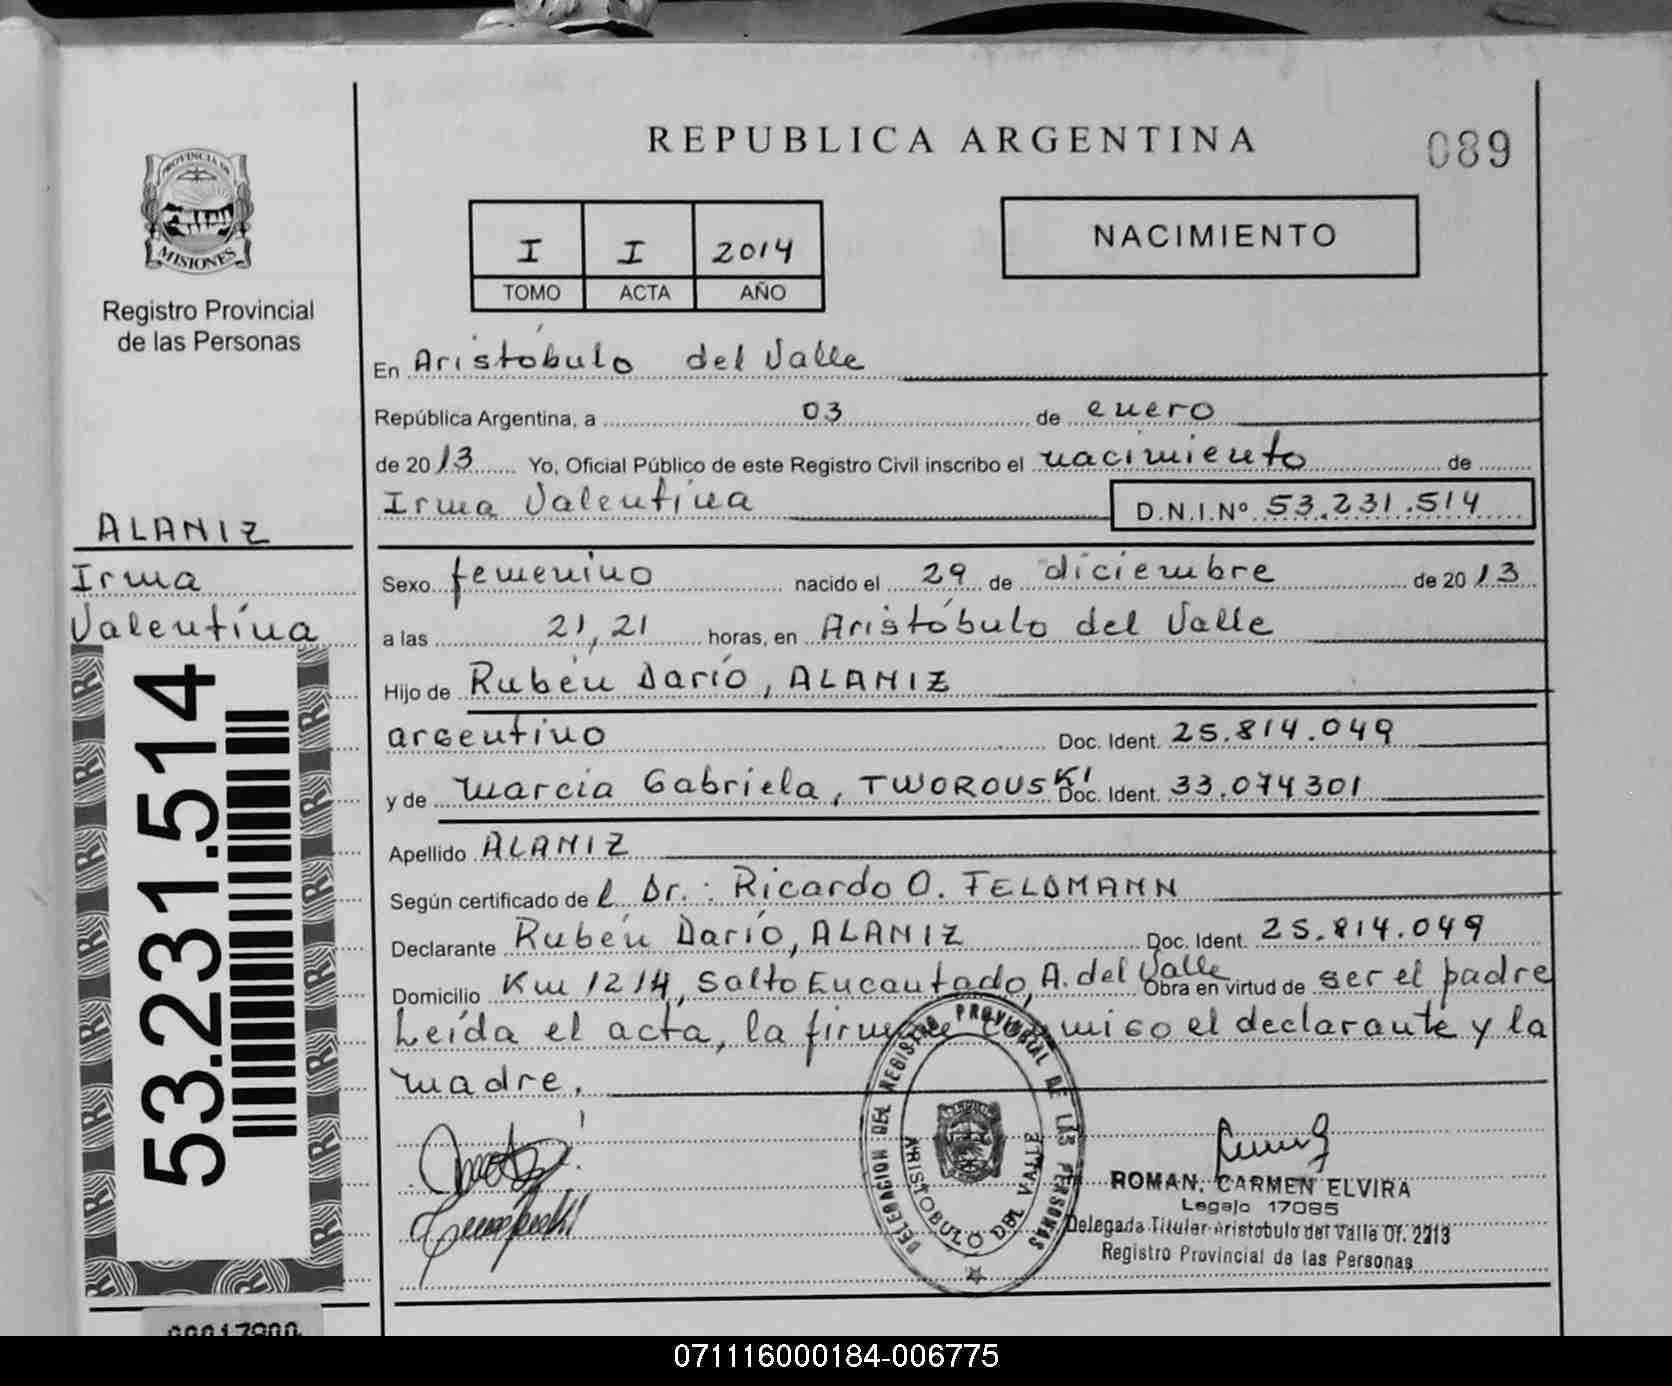 REPUBLICA ARGENTINA
089
PROVINCIA DE
MISIONES
Registro Provincial
de las Personas
I I 2014
TOMO ACTA AÑO
NACIMIENTO
En Aristóbulo del Valle
República Argentina, a 03 de enero
de 2013 Yo, Oficial Público de este Registro Civil inscribo el nacimiento de
Irma Valentina D.N.I.Nº 53.231.514
ALANIZ
Irma
Valentina
Sexo femenino nacido el 29 de diciembre de 2013
a las 21,21 horas, en Aristóbulo del Valle
Hijo de Rubén Darío, ALANIZ
argentino Doc. Ident. 25.814.049
y de Marcia Gabriela, TWOROUSKI Doc. Ident. 33.074301
Apellido ALANIZ
Según certificado del Dr.: Ricardo O. FELDMANN
Declarante Rubén Darío, ALANIZ Doc. Ident. 25.814.049
Domicilio Km 1214, Salto Encantado, A. del Valle Obra en virtud de ser el padre
Leída el acta, la firman conmigo el declarante y la
madre.
53.231.514
DELEGACION DEL REGISTRO PROVINCIAL DE LAS PERSONAS
ARISTOBULO DEL VALLE
ROMAN, CARMEN ELVIRA
Legajo 17085
Delegada Titular Aristobulo del Valle Of. 2213
Registro Provincial de las Personas
071116000184-006775